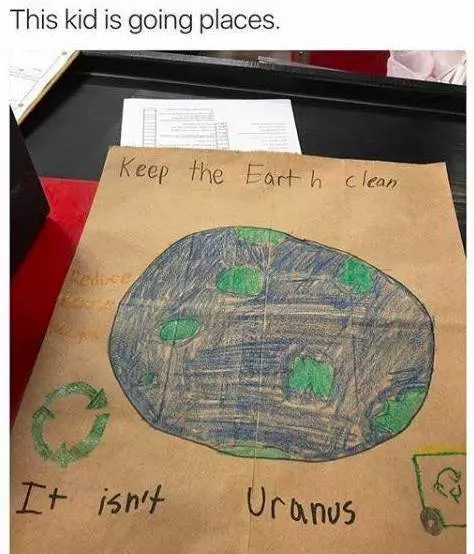 This kid is going places.
Keep the Earth clean
Reduce
It isn't Uranus